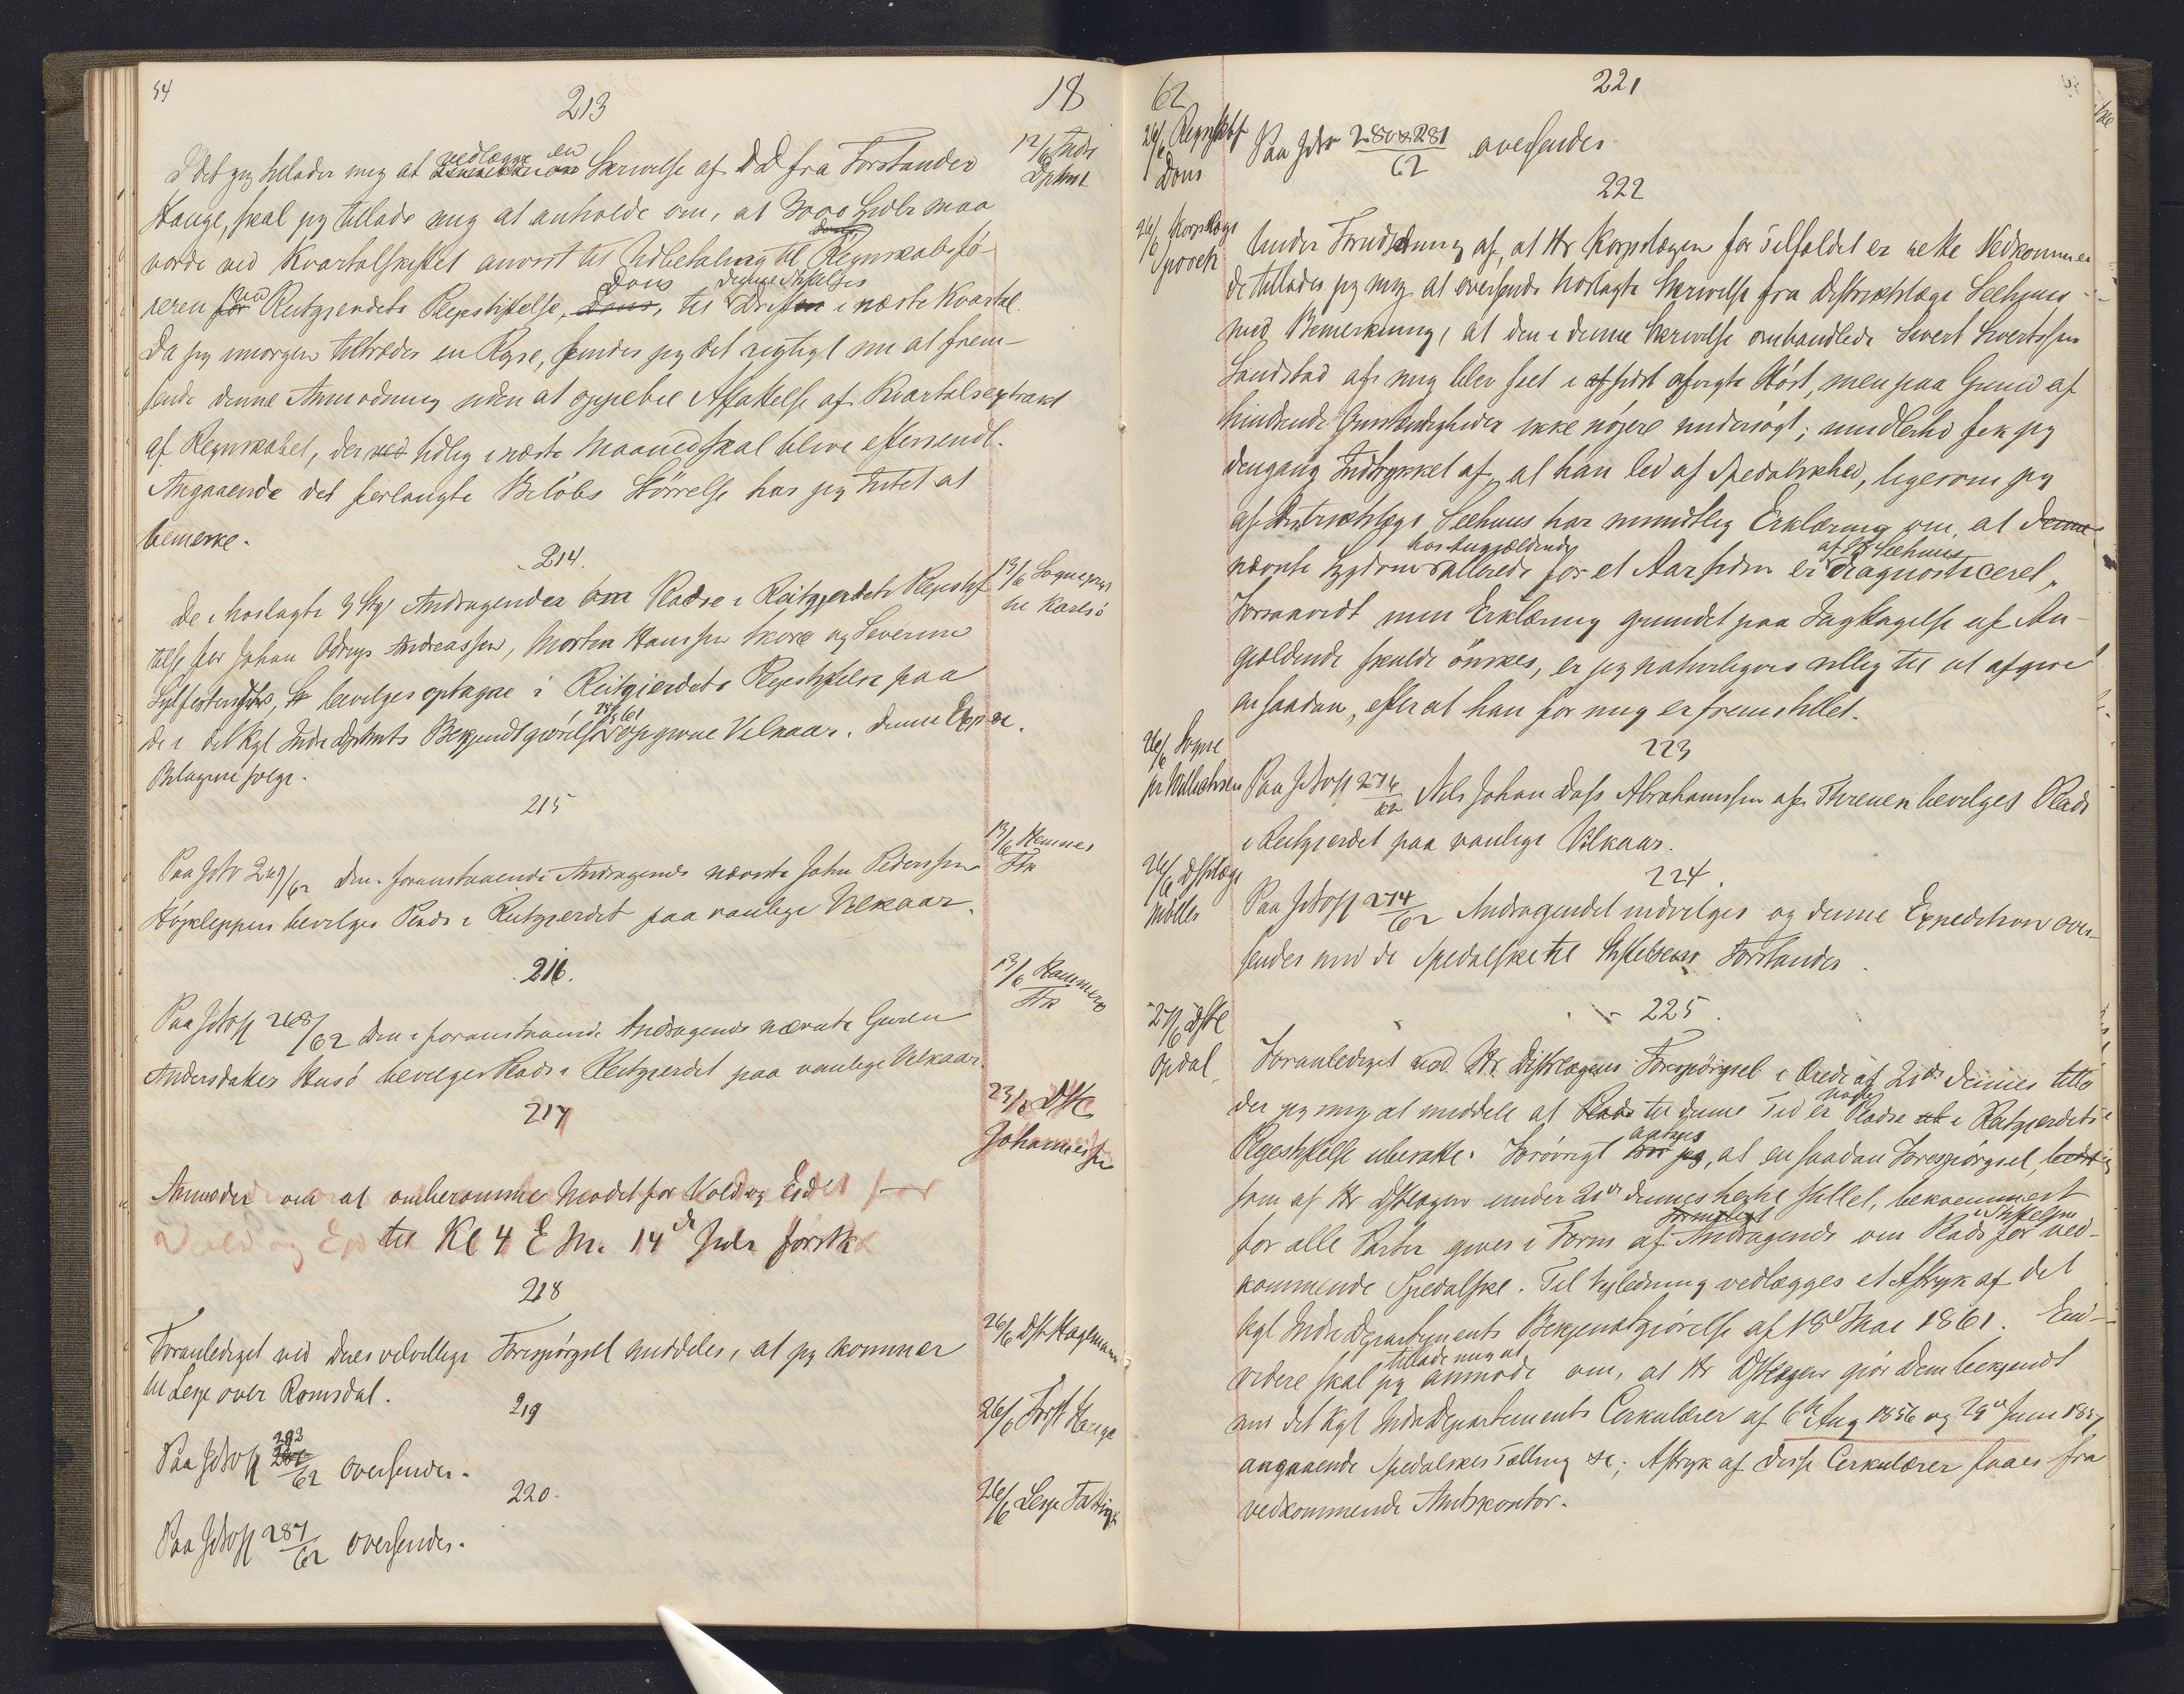 54
213
18
12/6 Indr
Dptmt
Idet jeg tillader mig at vedlægge en Skrivelse af DD fra Forstander
Hauge, skal jeg tillade mig at anholde om, at 3000 Spdlr maa
vorde ved Kvartalskiftet anvist til Udbetaling til Regnskabsfö-
reren ved Reitgjerdets Plejestiftelse, Dons, til denne Stiftelses Drift i næste Kvartal.
Da jeg imorgen tiltræder en Rejse, finder jeg det rigtigt nu at frem-
sende denne Anmodning uden at oppebie Affattelse af Kvartalsextrakt
af Regnskabet, der tidlig i næste Maaned skal blive eftersendt.
Angaaende det forlangte Beløbs Störrelse har jeg Intet at
bemerke.
214.
13/6 Sognepræst
til Karlsö
De i hoslagte 3 Stkr Andragender om Pladse i Reitgjerdets Plejestif-
telse for Johan Andreassen, Morten Hanssen Skore og Severine
bevilges optagne i Reitgjerdets Plejestiftelse paa
de i det Kgl Indr Dptmts Bekjendtgjørelse 18/5 61 opgivne Vilkaar. Denne Exp &c.
Bilagene følge.
215
13/6 Hemnes
Ftk
Paa JNo 269/62 Den i foranstaaende Andragende nævnte John Pederssen
Höjkleppen bevilges Plads i Reitgjerdet paa vanlige Vilkaar.
216.
13/6 Hammerö
Ftk
Paa JNo 268/62 Den i foranstaaende Andragende nævnte Guren
Andersdatter Husö bevilges Plads i Reitgjerdet paa vanlige Vilkaar.
217
23/6 Dstl
Johannessen
Anmoder om at omberamme Mødet for Vold og Eid
til Kl 4 E M. 14de Juli förstk
218
26/6 Dstl Hagemann
Foranlediget ved Deres velvillige Forespörgsel meddeles, at jeg kommer
til Lesje over Romsdal.
219
26/6 Forst Hauge
Paa JNo 293/62 oversendes.
220.
26/6 Lesje Fattigk
Paa JNo 287/62 oversendes.
62
221
26/6 Regnskbf
Dons
Paa JNr 280 & 281/62 oversendes.
222
26/6 Korpslæge
Under Forudsætning af, at Hr Korpslægen for Tilfældet er rette Vedkommen
de tillader jeg mig at oversende hoslagte Skrivelse fra Distriktslæge Seehuus
med Bemerkning, at den i denne Skrivelse omhandlede Sivert Sivertssen
Sandstad af mig blev seet i sidst afvigte Höst, men paa Grund af
hindrende Omstændigheder ikke nöjere undersögt; imidlertid fik jeg
dengang Indtrykket af, at han led af Spedalskhed, ligesom jeg
af Distriktslæge Seehuus har mundtlig Erklæring om, at denne
nævnte Sygdom hos Angjældende allerede for et Aar siden er af Hr Seehuus diagnosticeret.
Forsaavidt min Erklæring grundet paa Iagttagelse af An-
gjældende skulde önskes, er jeg naturligvis villig til at afgive
en saadan, efterat han for mig er fremstillet.
223
26/6 Sogne
pr
Paa JNo 276/62 Nils Johan Dass Abrahamssen af Threnen bevilges Plads
i Reitgjerdet paa vanlige Vilkaar.
224.
26/6 Dstlæge
Möller
Paa JNo 274/62 Andragendet indvilges og denne Expedition over-
sendes med de Spedalske til Stiftelsens Forstander.
225.
27/6 Dstl
Opdal
Foranlediget ved Hr Distlægens Forespörgsel i Brev af 21de dennes tilla
der jeg mig at meddele at til denne Tid er nogle Pladse i Reitgjerdets
Plejestiftelse ubesatte. Forövrigt antages, at en saadan Forespörgsel,
som af Hr Dstlægen under 21de dennes stillet, bekvemmest
for alle Parter gives i Form af Andragende om Plads i Stiftelsen for ved-
kommende Spedalske. Til Vejledning vedlægges et Aftryk af det
kgl Indre Departements Bekjendtgiörelse af 18de Mai 1861. End-
videre skal jeg tillade mig at anmode om, at Hr Dstlægen gjör Dem bekjendt
med det Kgl Indre Departements Cirkulærer af 6te Aug 1856 og 29de Juni 1857
angaaende Spedalskes Tælling &c; Aftryk af disse Cirkulærer faaes fra
vedkommende Amtskontor.